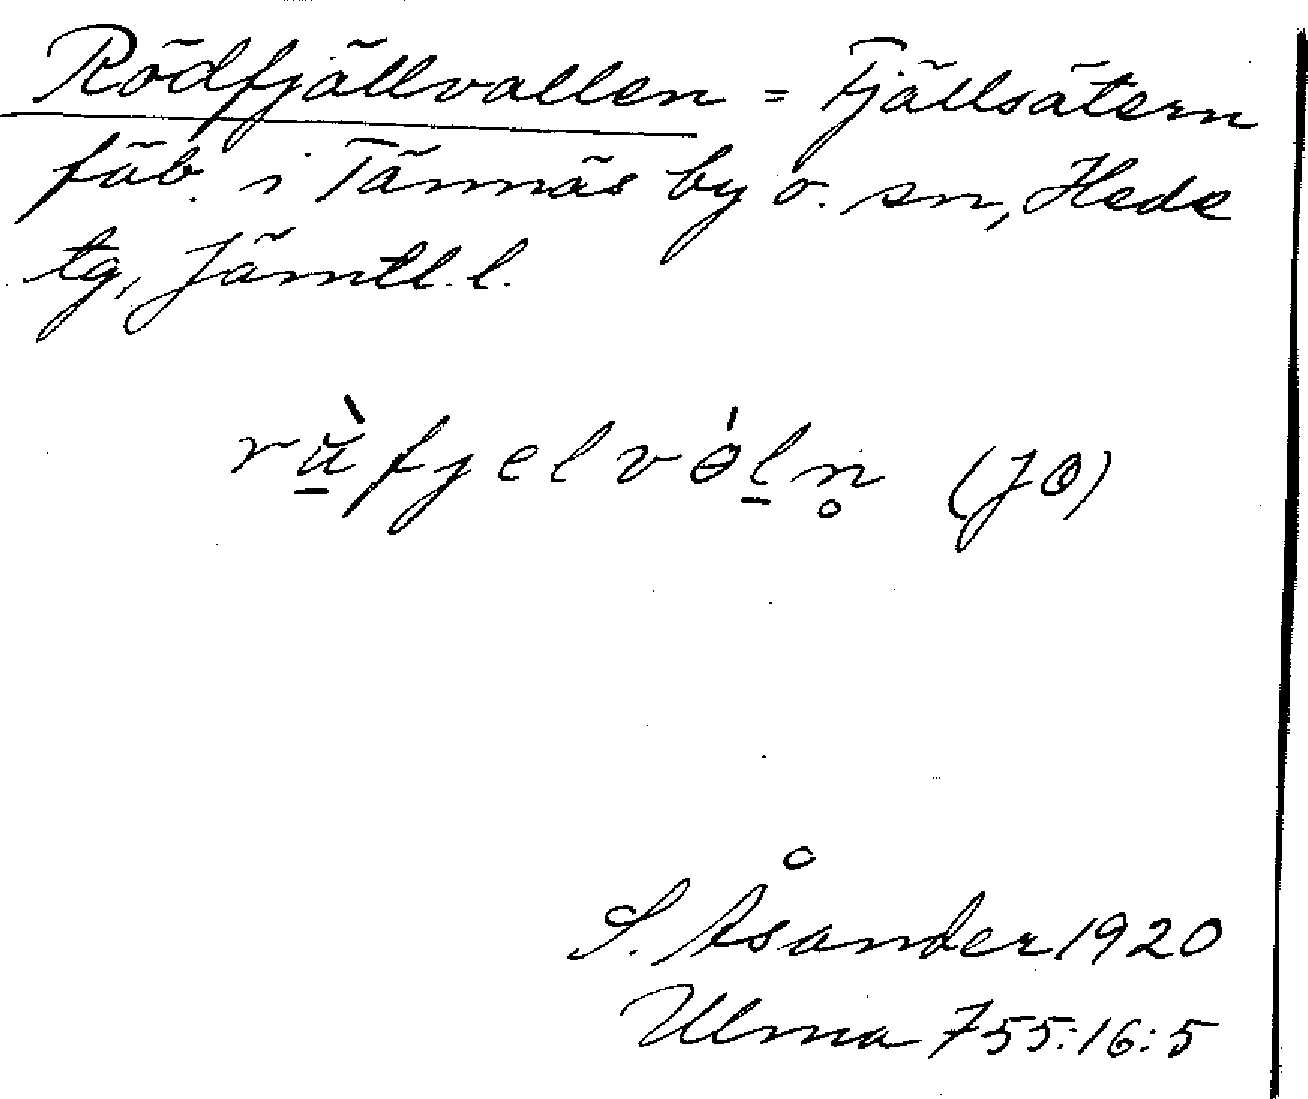 Rödfjällvallen = Fjällsätern
fäb. i Tännäs by o. sn, Hede
tg, Jämtl. l.
rö̀fjelvəln̥ (JO)
S. Åsander 1920
Ulma 755:16:5